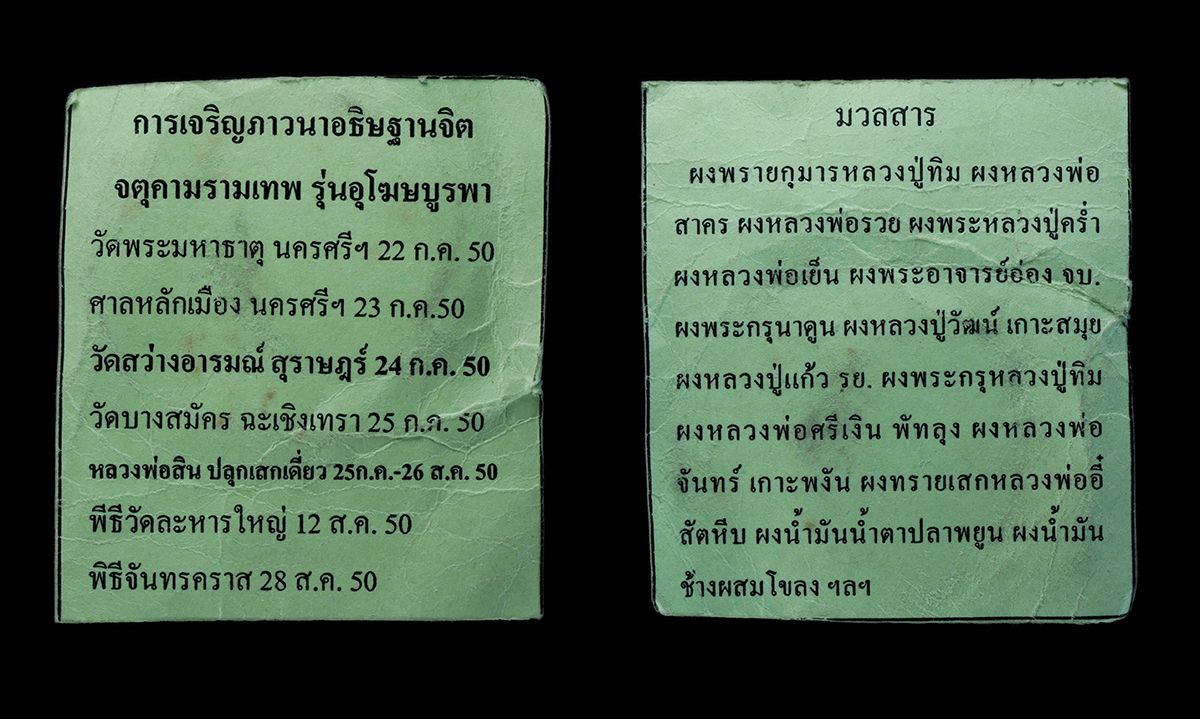 การเจริญภาวนาอธิษฐานจิต
จตุคามรามเทพ รุ่นอุโฆษบูรพา
วัดพระมหาธาตุ นครศรีฯ 22 ก.ค. 50
ศาลหลักเมือง นครศรีฯ 23 ก.ค.50
วัดสว่างอารมณ์ สุราษฎร์ 24 ก.ค. 50
วัดบางสมัคร ฉะเชิงเทรา 25 ก.ค. 50
หลวงพ่อสิน ปลุกเสกเดี่ยว 25ก.ค.-26 ส.ค. 50
พีธีวัดละหารใหญ่ 12 ส.ค. 50
พิธีจันทรคราส 28 ส.ค. 50
มวลสาร
ผงพรายกุมารหลวงปู่ทิม ผงหลวงพ่อ
สาคร ผงหลวงพ่อรวย ผงพระหลวงปู่คร่ำ
ผงหลวงพ่อเย็น ผงพระอาจารย์อ่อง จบ.
ผงพระกรุนาดูน ผงหลวงปู่วัฒน์ เกาะสมุย
ผงหลวงปู่แก้ว รย. ผงพระกรุหลวงปู่ทิม
ผงหลวงพ่อศรีเงิน พัทลุง ผงหลวงพ่อ
จันทร์ เกาะพงัน ผงทรายเสกหลวงพ่ออี๋
สัตหีบ ผงน้ำมันน้ำตาปลาพยูน ผงน้ำมัน
ช้างผสมโขลง ฯลฯ